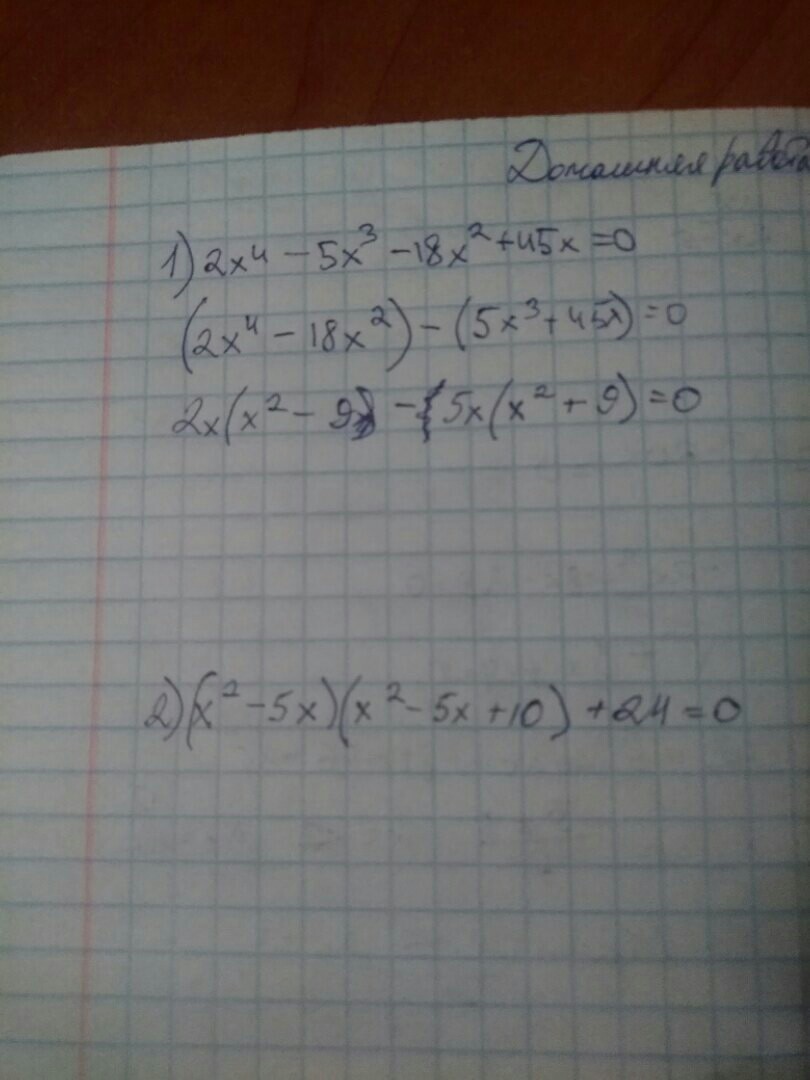 Домашняя работа
1) 2x⁴ - 5x³ - 18x² + 45x = 0
(2x⁴ - 18x²) - (5x³ + 45x) = 0
2x(x² - 9) - 5x(x² + 9) = 0
2) (x² - 5x)(x² - 5x + 10) + 24 = 0